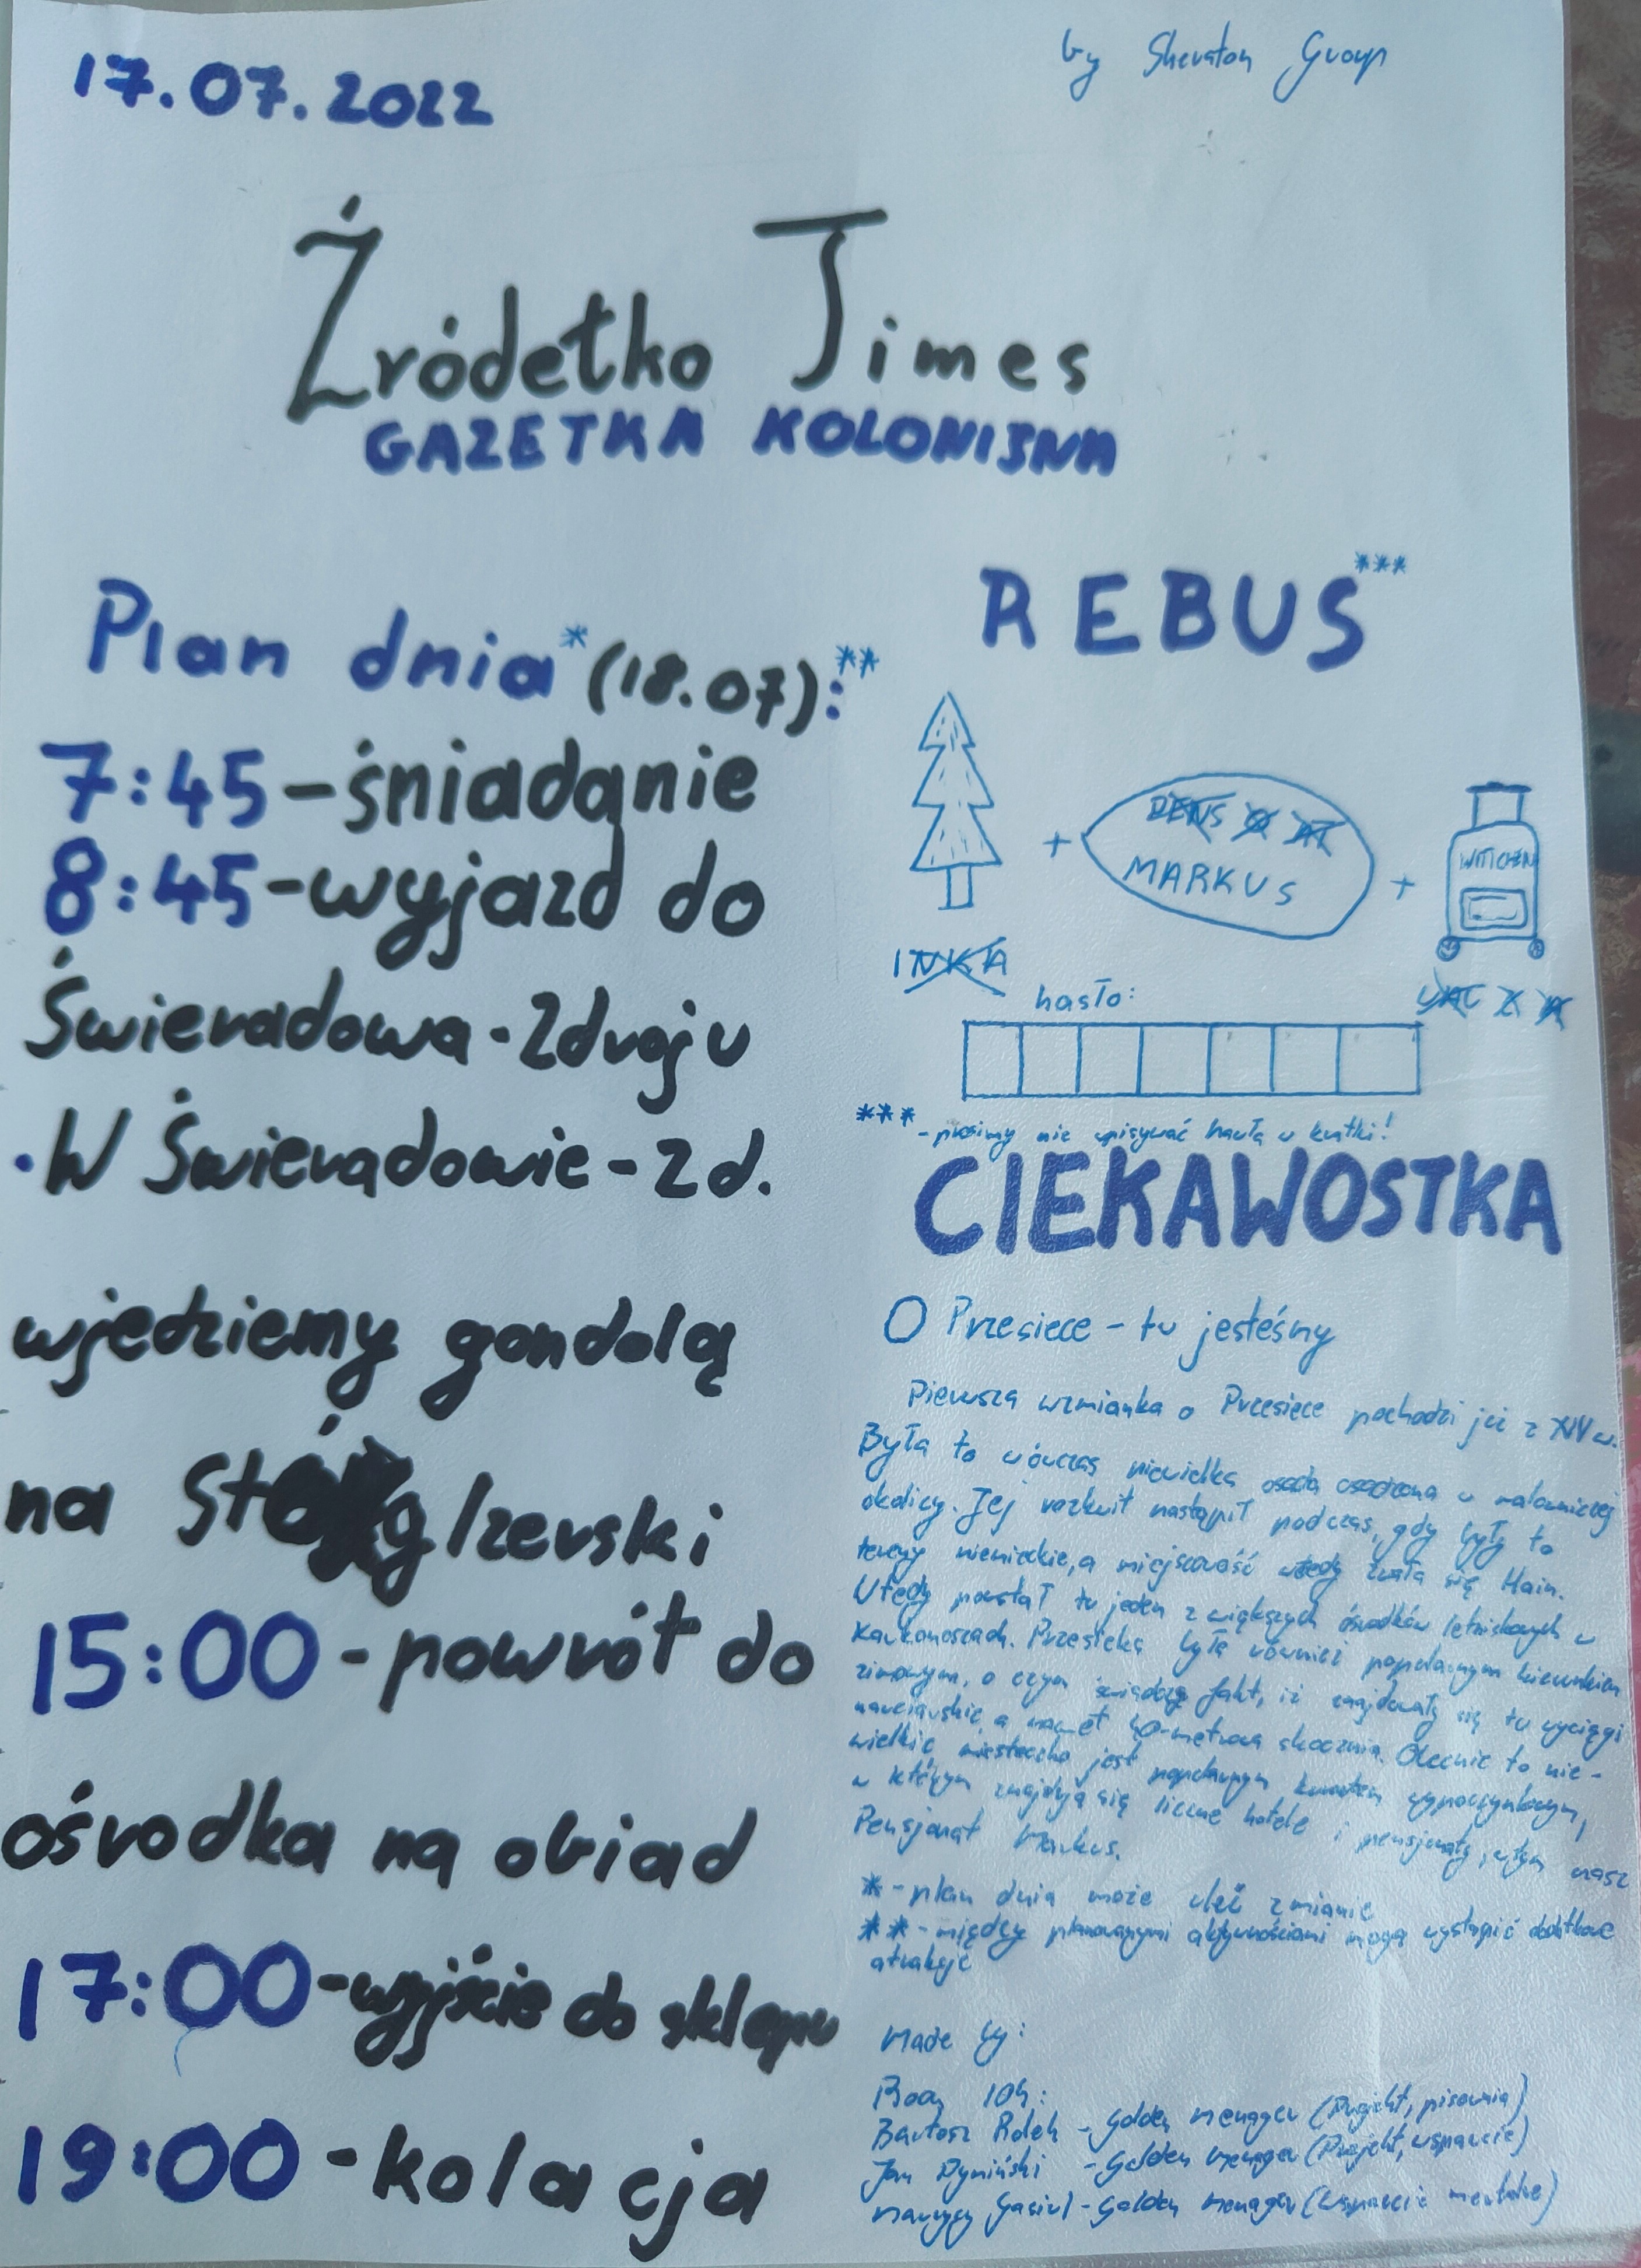 17.07.2022
by Sheraton Group
Źródełko Times
GAZETKA KOLONIJNA
Plan dnia* (18.07):**
7:45 - śniadanie
8:45 - wyjazd do
Świeradowa - Zdroju
• W Świeradowie - Zd.
wjedziemy gondolą
na Stóg Izerski
15:00 - powrót do
ośrodka na obiad
17:00 - wyjście do sklepu
19:00 - kolacja
REBUS***
+ MARKUS +
WITTCHEN
INKA
hasło:
*** - prosimy nie wpisywać hasła w kratki!
CIEKAWOSTKA
O Przesiece - tu jesteśmy
Pierwsza wzmianka o Przesiece pochodzi już z XIV w.
Była to wówczas niewielka osada osadzona w malowniczej
okolicy. Jej rozkwit nastąpił podczas, gdy były to
tereny niemieckie, a miejscowość wtedy zwała się Hain.
Wtedy powstał tu jeden z większych ośrodków letniskowych w
Karkonoszach. Przesieka była również popularnym kierunkiem
zimowym, o czym świadczy fakt, iż znajdowały się tu wyciągi
narciarskie, a nawet 40-metrowa skocznia. Obecnie to nie-
wielkie miasteczko jest popularnym wypoczynkowym,
w którym znajdują się liczne hotele i pensjonaty, w tym nasz
Pensjonat Markus.
* - plan dnia może ulec zmianie
** - między planowanymi aktywnościami mogą wystąpić dodatkowe
atrakcje
Made by:
104:
Bartosz - Golden menager (Projekt, pisownia)
Jan - Golden menager (Projekt, wsparcie)
- Golden menager (wsparcie mentalne)